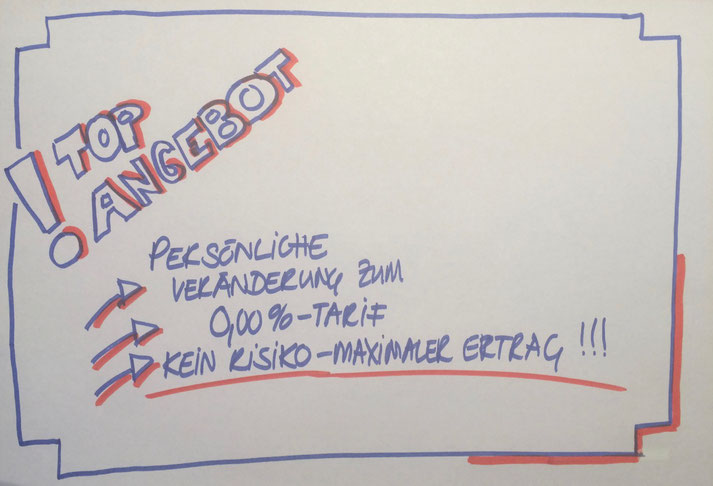 ! TOP
ANGEBOT
PERSÖNLICHE
VERÄNDERUNG ZUM
0,00%-TARIF
KEIN RISIKO-MAXIMALER ERTRAG !!!